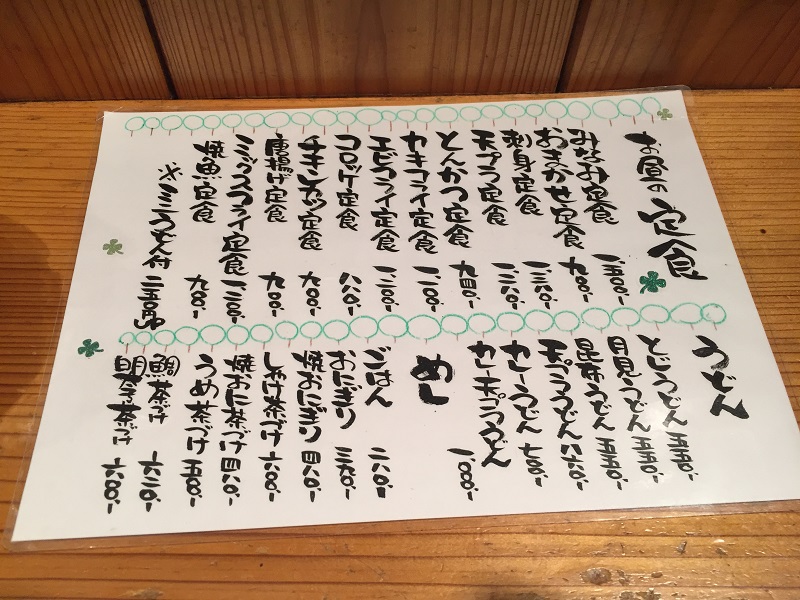 お昼の定食
みなみ定食 一、五〇〇-
おまかせ定食 九〇〇-
刺身定食
天プラ定食
とんかつ定食 九四〇-
カキフライ定食
エビフライ定食
コロッケ定食
チキンカツ定食 九〇〇-
唐揚げ定食 九〇〇-
ミックスフライ定食
焼魚定食 九〇〇-
※ミニうどん付 二五〇円up
うどん
とじうどん 五五〇-
月見うどん 五五〇-
昆布うどん 五五〇-
天プラうどん 八六〇-
カレーうどん 七〇〇-
カレー天プラうどん 一、〇〇〇-
めし
ごはん 二八〇-
おにぎり
焼おにぎり 四八〇-
しゃけ茶づけ 六〇〇-
焼おに茶づけ 四八〇-
うめ茶づけ 五〇〇-
鯛茶づけ 六二〇-
明太子茶づけ 六〇〇-